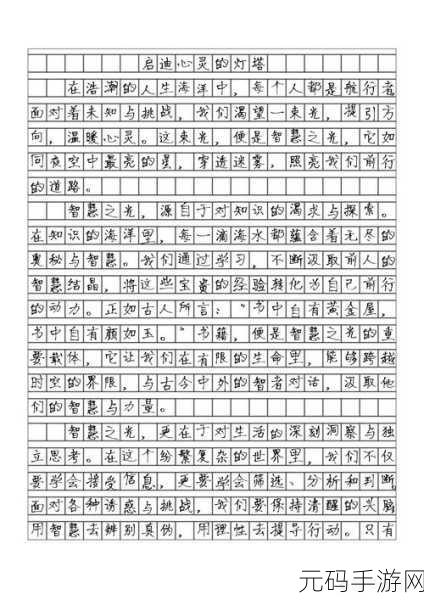 启迪心灵的灯塔
在浩瀚的人生海洋中，每个人都是航行者
面对着未知与挑战，我们渴望一束光，指引方
向，温暖心灵。这束光，便是智慧之光，它如
同夜空中最亮的星，穿透迷雾，照亮我们前行
的道路。
智慧之光，源自于对知识的渴求与探索。
在知识的海洋里，每一滴海水都蕴含着无尽的
奥秘与智慧。我们通过学习，不断汲取前人的
智慧结晶，将这些宝贵的经验转化为自己前行
的动力。正如古人所言："书中自有黄金屋，
书中自有颜如玉。"书籍，便是智慧之光的重
要载体，它让我们在有限的生命里，能够跨越
时空的界限，与古今中外的智者对话，汲取他
们的智慧与力量。
智慧之光，更在于对生活的深刻洞察与独
立思考。在这个纷繁复杂的世界里，我们不仅
要学会接受信息，更要学会筛选、分析和判断。
面对各种诱惑与挑战，我们要保持清醒的头脑
用智慧去辨别真伪，用理性去指导行动。只有
元码手游网